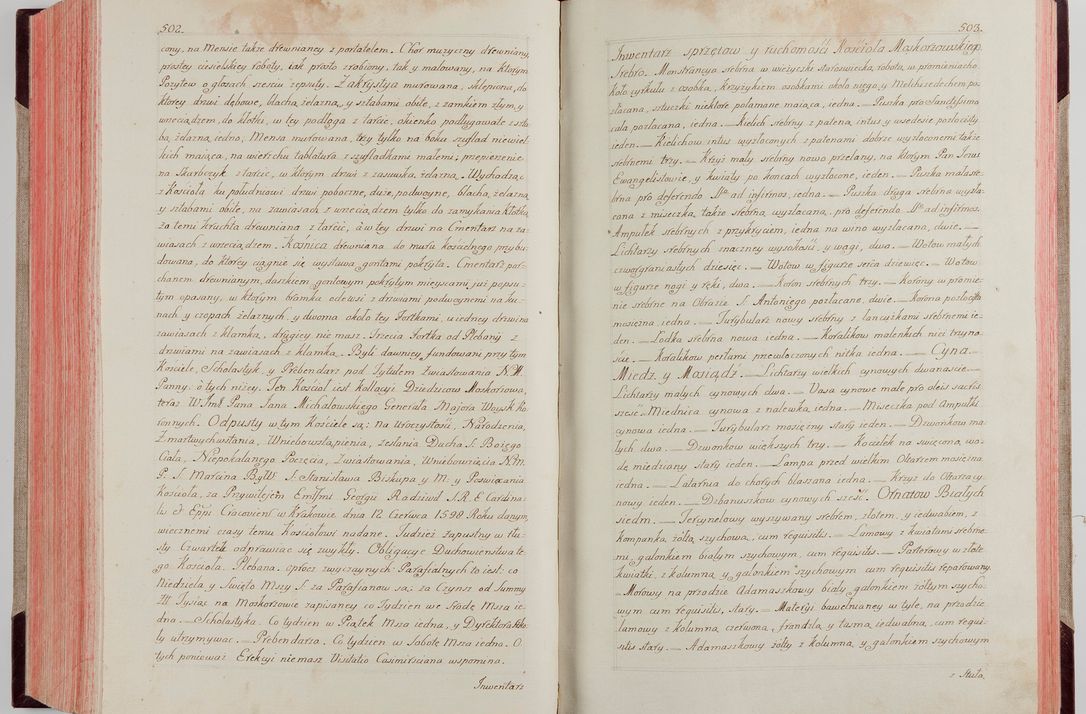 502.
cony, na Mensie także drewnianey z portatelem. Chor muzyczny drewniany,
prostey ciesielskiey roboty, iak prosto zrobiony, tak y malowany, na ktorym
Pozytew o głosach sześciu zepsuty. Zakrystya murowana, sklepiona, do
ktorey drzwi dębowe, blachą żelazną, y sztabami obite, z zamkiem złym, y
wrzeciądzem, do klotki, w tey podłoga z tarcic, okienko podługowate z szta
bą żelazną, iedno, Mensa murowana, trzy tylko na boku szuflad niewiel
kich maiąca, na wierzchu tablatura z szufladkami małemi, przepierzenie
na Skarbczyk z tarcic, w ktorym drzwi z zasuwką żelazną. Wychodząc
z Kościoła ku południowi drzwi poboczne, duże, podwoyne, blachą żelazną
y sztabami obite, na zawiasach z wrzeciądzem tylko do zamykania klotką
za temi kruchta drewniana z tarcic, á w tey drzwi na Cmentarz na za
wiasach z wrzeciądzem. Kosnica drewniana do muru kościelnego przybu
dowana, do ktorey ciągnie się wystawa gontami pokryta. Cmentarz par
chanem drewnianym, daszkiem gontowym pokrytym mieyscami już popsu
tym opasany, w ktorym bramka od wsi z drzwiami podwoynemi na ku
nach y czopach żelaznych y dwoma około tey Fortkami, u iedney drzwi na
zawiasach z klamką, drugiey nie masz. Trzecia Fortka od Plebanyi z
drzwiami na zawiasach z klamką. Byli dawniey fundowani przy tym
Kościele, Scholastyk y Prebendarz pod Tytułem Zwiastowania N. M.
Panny. o tych niżey. Ten Kościoł iest kollacyi Dziedzicow Moskorzowa,
teraz W. Jmć Pana Jana Michałowskiego Generała Majora Woysk Ko
ronnych. Odpusty w tym Kościele są: na Uroczystość, Narodzenia,
Zmartwychwstania, Wniebowstąpienia, Zesłania Ducha S. Bożego
Ciała, Niepokalanego Poczęcia, Zwiastowania, Wniebowzięcia N. M.
P. S. Marcina B. y W. S. Stanisława Biskupa y M. y Poswięcania
Kościoła, za Przywilejem Emisssmi Georgij Radziwił S. R. E. Cardina
lis et Eppi Cracovien: w Krakowie dnia 12 Czerwca 1598 Roku danym,
wiecznemi czasy temu Kościołowi nadane. Tudzież zapustny w tłu
sty Czwartek odprawiac się zwykły. Obligacye Duchowienstwa te
go Kościoła. Plebana. oprocz zwyczaynych Parafialnych to iest: co
Niedziela y Swięto Mszy S. za Parafianow są; za Czynsz od Summy
ZII. Tysiąc na Moskorzowie zapisaney co Tydzien we Srodę Msza ie-
dna. — Scholastyka. Co tydzien w Piątek Msza iedna, y Dyrektora szko
ły utrzymywac. — Prebendarza. Co tydzien w Sobotę Msza iedna. O
tych ponieważ Erekcyi nie masz Visitatio Casimirsciana wspomina.
Inwentarz
503.
Inwentarz sprzętow y ruchomości Kościoła Moskorzowskiego.
Srebro. Monstrancya srebrna w wieżyczki staroswiecka, robota w promieniach o
koło cyrkułu z osobką, krzyżykiem, osobkami około niego, y Melchisedechem po
złacana, sztuczki niektore połamane maiąca, iedna. — Puszka pro Sanctissimo
cała pozłacana, iedna. — Kielich srebrny z pateną, intus y wszędzie pozłocisty
ieden. — Kielichow intus wyzłoconych z patenami dobrze wyzłoconemi także
srebrnemi trzy. — Krzyż mały srebrny nowo przelany, na ktorym Pan Jezus
Ewangelistowie, y kwiaty po końcach wyzłocone, ieden. — Puszka mała sre
brna pro deferendo Sſſo ad infirmos, iedna. — Puszka druga srebrna wyzła-
cana z miseczką, także srebrną, wyzłacaną, pro deferendo Sſſo ad infirmos.
Ampułek srebrnych z przykryciem, iedna na wino wyzłacana, dwie. —
Lichtarzy srebrnych znaczney wysokości y wagi, dwa. — Wotow małych
czworgraniastych dziesięć. — Wotow w figurze serca dziewięć. — Wotow
w figurze nogi y ręki, dwa. — Koron srebrnych trzy. — Korony w promie-
nie srebrne na Obrazie S. Antoniego pozłacane, dwie. — Korona pozłocista
mosiężna iedna. — Turybularz nowy srebrny z łancuszkami srebrnemi ie-
den. — Łodka srebrna nowa iedna. — Koralikow malenkich nici trzyna
ście. — Koralikow perłami przewłoczonych nitka iedna. — Cyna.
Miedz, y Mosiądz. — Lichtarzy wielkich cynowych dwanaście. —
Lichtarzy małych cynowych dwa. — Vasa cynowe małe pro oleis sacris
sześć. — Miednica cynowa z nalewką, iedna. — Miseczka pod Ampułki
cynowa iedna. — Turybularz mosiężny stary ieden. — Dzwonkow ma
łych dwa. — Dzwonkow większych trzy. — Kociełek na swięconą wo-
dę miedziany stary ieden. — Lampa przed wielkim Ołtarzem mosiężna
iedna. — Latarnia do chorych blaszana iedna. — Krzyż do Ołtarzy
nowy ieden. — Dzbanuszkow cynowych sześć. Ornatow Białych
siedm. — Tercynelowy wyszywany srebrem, złotem, y iedwabiem, z
kompanką żołtą szychową, cum requisitis. — Lamowy z kwiatami srebrne
mi, galonkiem białym szychowym, cum requisitis. — Parterowy w złote
kwiatki, z kolumną y galonkiem szychowym cum requisitis reparowany.
— Morowy na przodzie Adamaszkowy biały galonkiem żołtym szycho-
wym cum requisitis, stary. — Materyi bawełnianey w tyle, na przodzie
lamowy z kolumną czerwoną, frandzlą y tasmą iedwabną, cum requi
sitis stary. — Adamaszkowy żołty z kolumną y galonkiem szychowym
z Stułą,